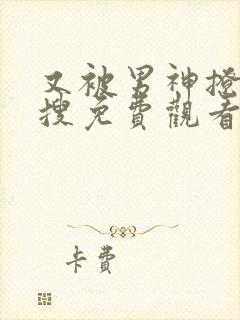 又被男神撩
搜免費觀看
卡費